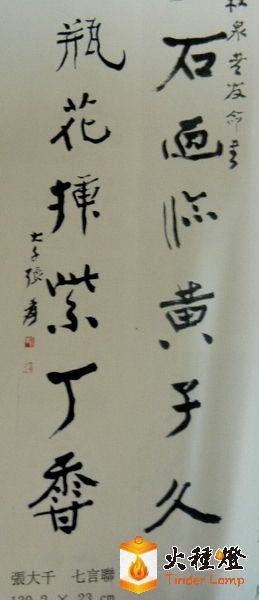 松泉老友命書
石画临黄子久
瓶花插紫丁香
大千張爰
張大千 七言聯
× 23 cm
火種燈
Tinder Lamp